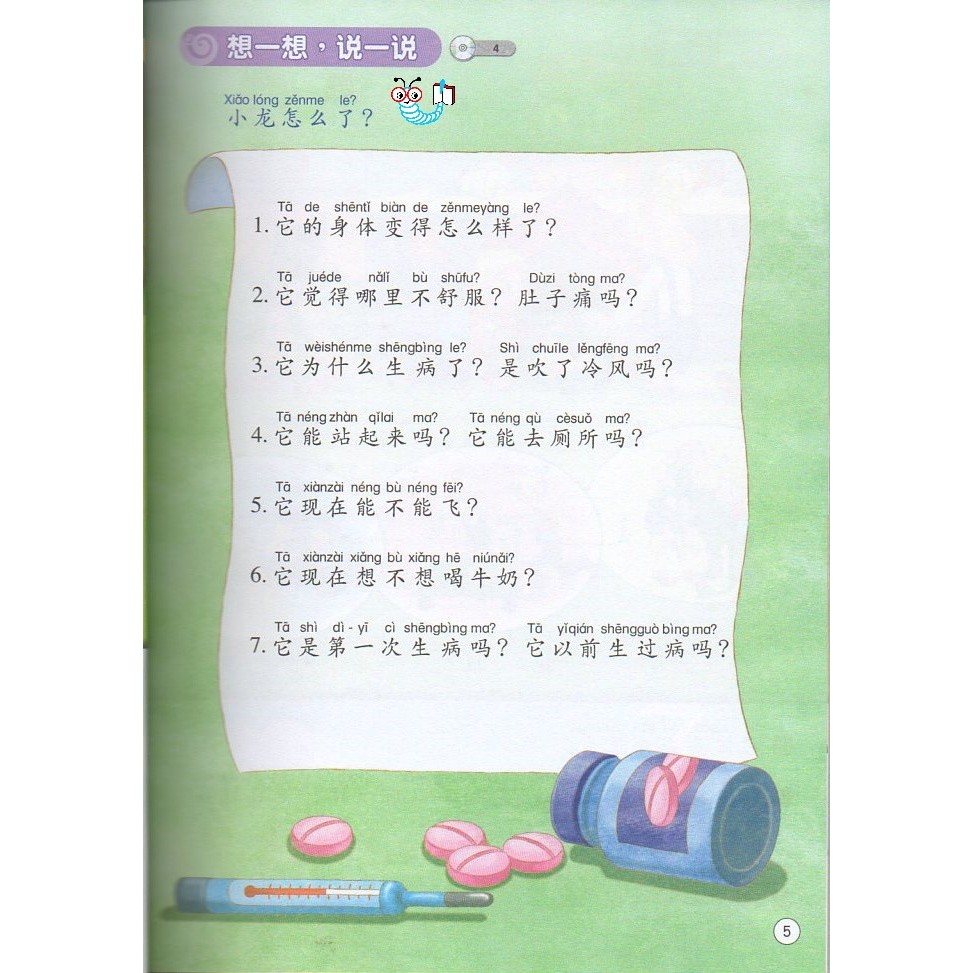 想一想，说一说
4
Xiǎo lóng zěnme le?
小龙怎么了？
Tā de shēntǐ biàn de zěnmeyàng le?
1. 它的身体变得怎么样了？
Tā juéde nǎlǐ bù shūfu? Dùzi tòng ma?
2. 它觉得哪里不舒服？ 肚子痛吗？
Tā wèishénme shēngbìng le? Shì chuīle lěngfēng ma?
3. 它为什么生病了？ 是吹了冷风吗？
Tā néng zhàn qǐlai ma? Tā néng qù cèsuǒ ma?
4. 它能站起来吗？ 它能去厕所吗？
Tā xiànzài néng bù néng fēi?
5. 它现在能不能飞？
Tā xiànzài xiǎng bù xiǎng hē niúnǎi?
6. 它现在想不想喝牛奶？
Tā shì dì-yī cì shēngbìng ma? Tā yǐqián shēngguò bìng ma?
7. 它是第一次生病吗？ 它以前生过病吗？
5